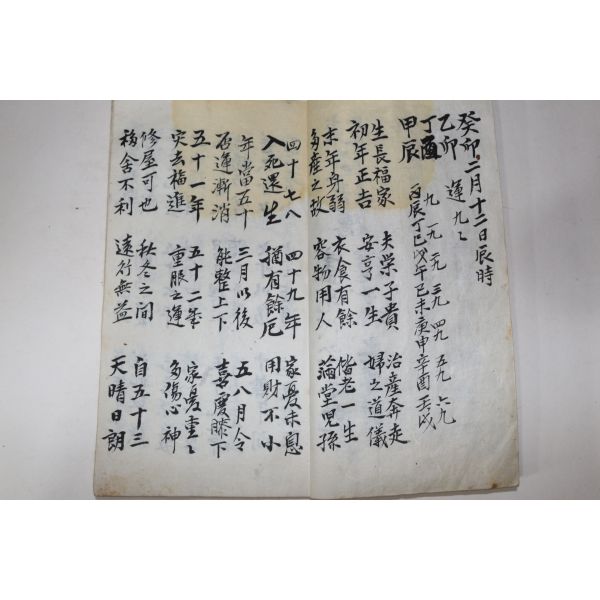 癸卯二月十二日辰時
乙卯 運九々
丁酉 九 一九 二九 三九 四九 五九 六九
甲辰 丙辰丁巳戊午己未庚申辛酉壬戌
生長福家 夫榮子貴 治產奔走
初年正吉 安亨一生 婦之道儀
末年身弱 衣食有餘 偕老一生
多產之故 容物用人 滿堂兒孫
四十七八 四十九年 家憂未息
入死還生 猶有餘厄 用財不小
年當五十 三月以後 五八月令
否運漸消 能整上下 喜慶膝下
五十一年 五十二年 家憂重々
災去福進 重服之運 多傷心神
修屋可也 秋冬之間 自五十三
移舍不利 遠行無益 天晴日朗